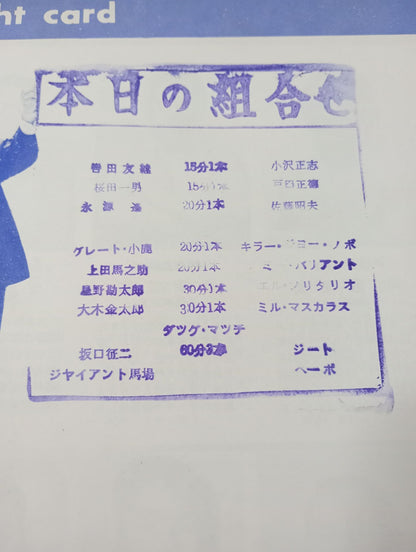 ht card
本日の組合せ
誉田友継 15分1本 小沢正志
桜田一男 15分1本 戸口正徳
永源遥 20分1本 佐藤昭夫
グレート・小鹿 20分1本 キラー・ ノボ
上田馬之助 20分1本 ミー・バリアント
星野勘太郎 30分1本 エル・ソリタリオ
大木金太郎 30分1本 ミル・マスカラス
ダツグ・マツチ
坂口征二 60分3本 ジート
ジヤイアント馬場 ヘーボ